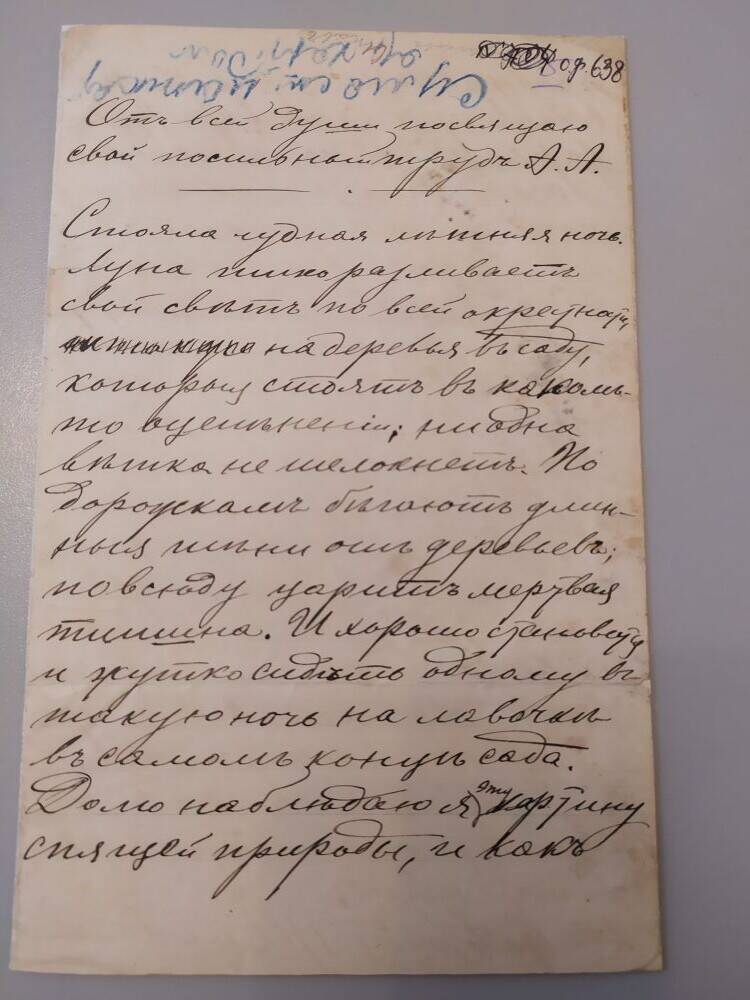 о.ф. 638
Отъ всей души посвящаю
свой посильный трудъ А. А.
Стояла чудная лѣтняя ночь.
Луна тихо разливаетъ
свой свѣтъ по всей окрестности,
на деревья въ саду,
которыя стоятъ въ какомъ-
то оцепѣненіи; ни одна
вѣтка не шелохнетъ. По
дорожкамъ бѣгаютъ длин-
ныя тѣни отъ деревьевъ;
повсюду царитъ мертвая
тишина. И хорошо становится
и жутко сидѣть одному въ
такую ночь на лавочкѣ
въ самомъ концѣ сада.
Долго наблюдаю я эту картину
спящей природы, и какъ